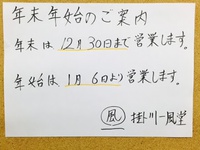 年末年始のご案内
年末は12月30日まで営業します。
年始は1月6日より営業します。
風 掛川一風堂